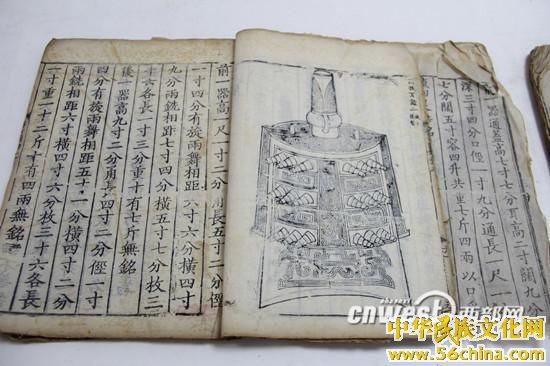 器通蓋高七寸七分耳高二寸闊九分
深三寸四分口徑一寸九分通長一尺一
七分闊五寸容四升共重七斤四兩以口
前一器高一尺一寸二分甬長五寸二分俓
一寸四分有旋兩舞相距六寸六分橫四寸
九分兩銑相距七寸四分橫五寸七分枚三
十六各長一寸三分重十有七斤無銘
後一器高九寸二分甬長四寸二分俓一寸
四分有旋兩舞相距五寸一分橫四寸二分
兩銑相距六寸橫四寸六分枚三十六各長
一寸重一十二斤十有四兩無銘
cnwest西部网
中华民族文化网
www.56china.com